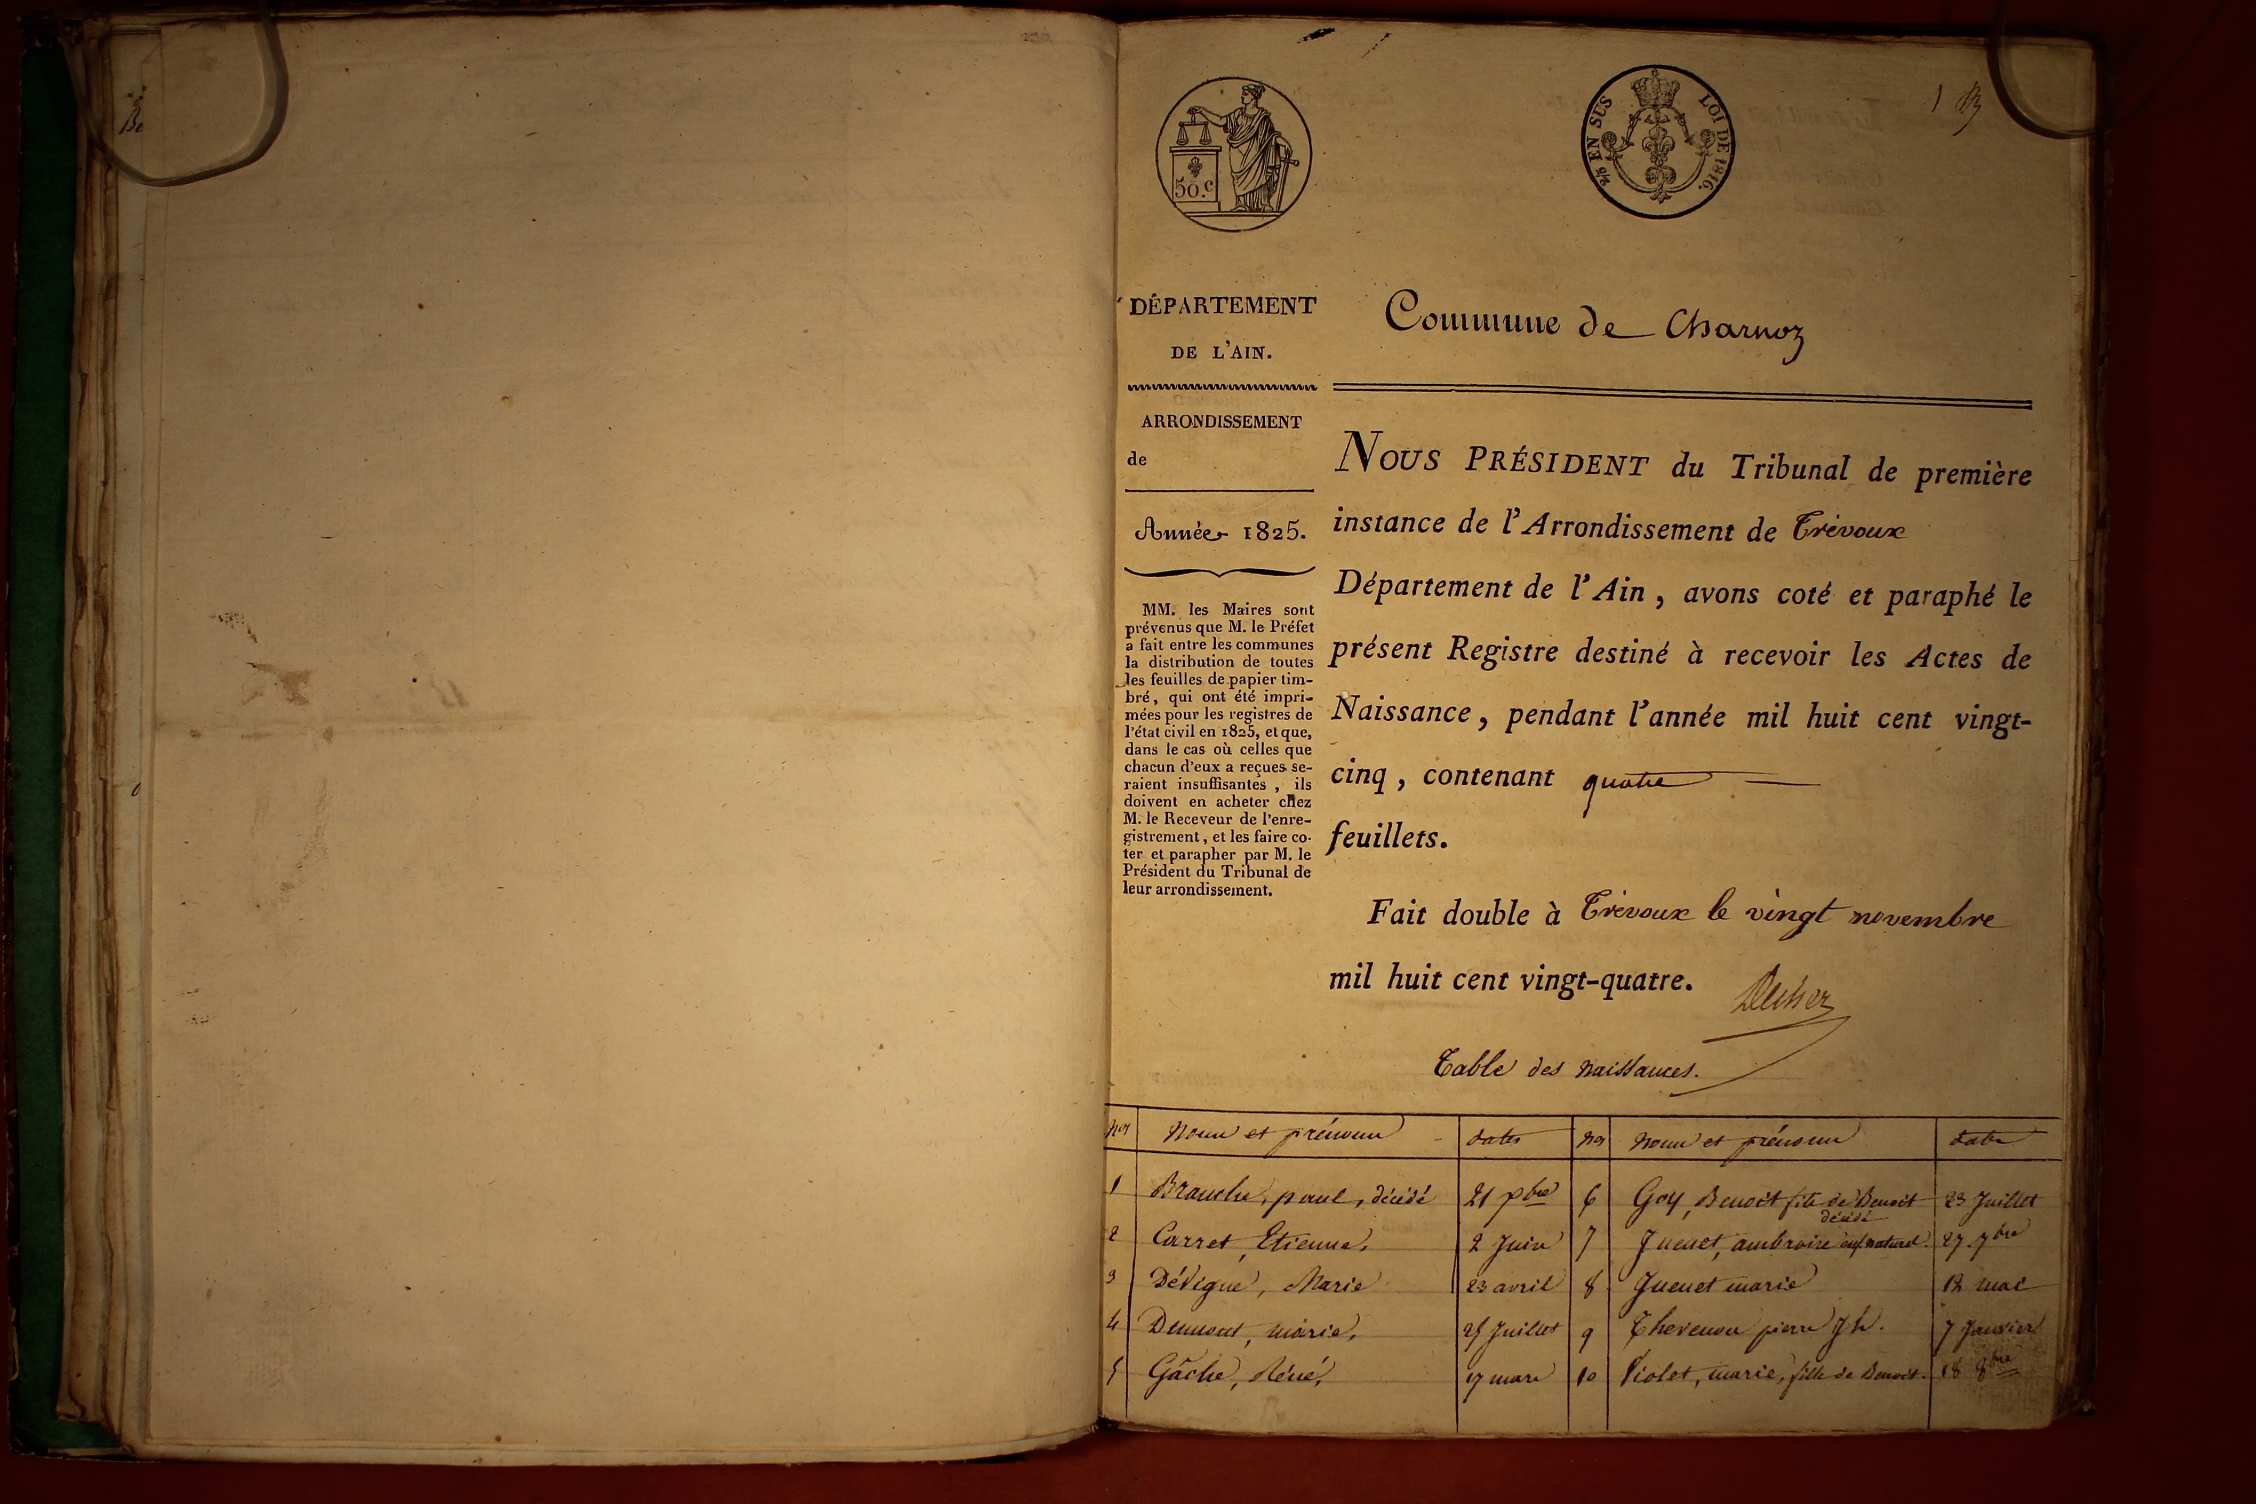 50.c
2/5 EN SUS LOI DE 1816.
1
DÉPARTEMENT
DE L'AIN.
ARRONDISSEMENT
de
Année 1825.
MM. les Maires sont
prévenus que M. le Préfet
a fait entre les communes
la distribution de toutes
les feuilles de papier tim-
bré, qui ont été impri-
mées pour les registres de
l'état civil en 1825, et que,
dans le cas où celles que
chacun d'eux a reçues se-
raient insuffisantes, ils
doivent en acheter chez
M. le Receveur de l'enre-
gistrement, et les faire co-
ter et parapher par M. le
Président du Tribunal de
leur arrondissement.
Commune de Charnoz
NOUS PRÉSIDENT du Tribunal de première
instance de l'Arrondissement de Trévoux
Département de l'Ain, avons coté et paraphé le
présent Registre destiné à recevoir les Actes de
Naissance, pendant l'année mil huit cent vingt-
cinq, contenant quatre
feuillets.
Fait double à Trévoux le vingt novembre
mil huit cent vingt-quatre.
Table des naissances.
Nos Noms et prénoms dates nos noms et prénoms date
1 Branche, paul, décédé 21 9bre 6 Goy, Benoit fils de Benoit décédé 23 Juillet
2 Carret, Etienne, 2 Juin 7 Juenet, ambroise enf. naturel. 27 7bre
3 Dévigne, Marie 23 avril 8 Juenet marie 12 mai
4 Dumont, marie, 25 Juillet 9 Thevenon pierre Jh. 7 Janvier
5 Gâche, Réné, 17 mars 10 Violet, marie, fille de Benoit. 18 8bre